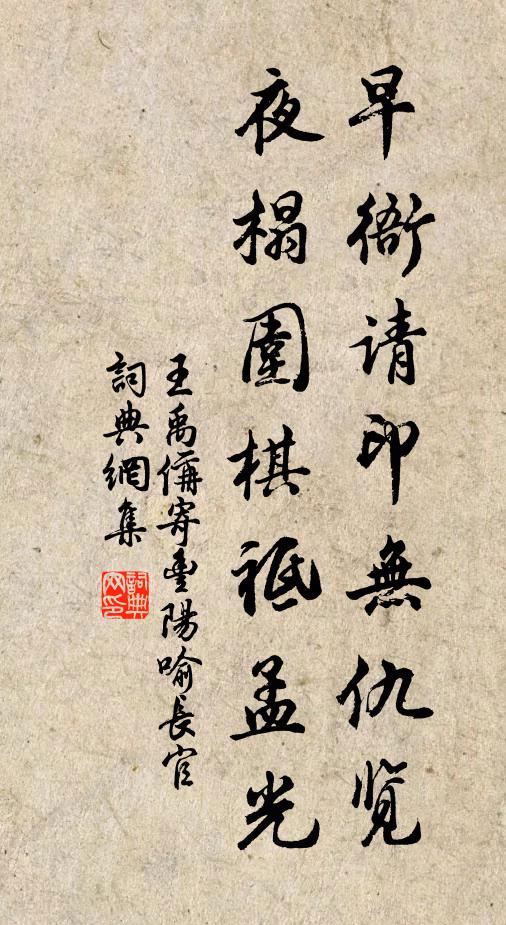 早衙请印無仇览
夜榻圍棋祗孟光
王禹偁寄豊陽喻長官
詞典網集
詞典网印